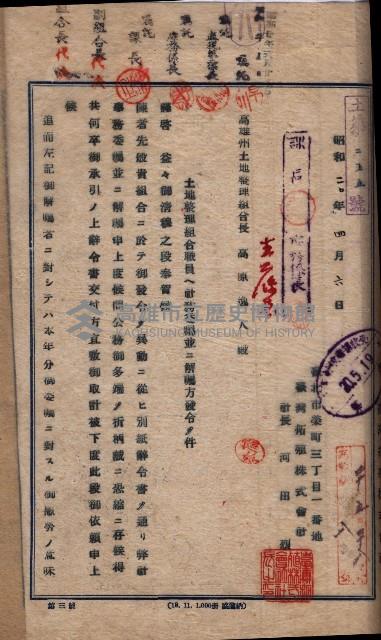 土拓 二五五 號
昭和二〇年 四月六日
臺北市榮町三丁目一番地
臺灣拓殖株式會社
社長 河田 烈
高雄州土地整理組合長 高原逸人殿
土地整理組合職員ヘ計 務囑託並ニ解囑方發令ノ件
謹啓 益々御清穆之段奉賀候
陳者先般貴組合ニ於テ御發令 異動ニ從ヒ別紙辭令書ノ通リ弊社
事務委囑並ニ解囑申上度候間公務御多端ノ折柄誠ニ恐縮ニ存候得
共何卒御承引ノ上辭令書交付方宜敷御取計被下度此段御依頼申上
候
追而左記御解囑者ニ對シテハ本年分御委囑ニ對スル御慰勞ノ意味
副組合長
組合長
課長
庶務係長
囑託
高雄市立歷史博物館
KAOHSIUNG MUSEUM OF HISTORY
20.5.19
第三號
(18. 11. 1.000册 納)